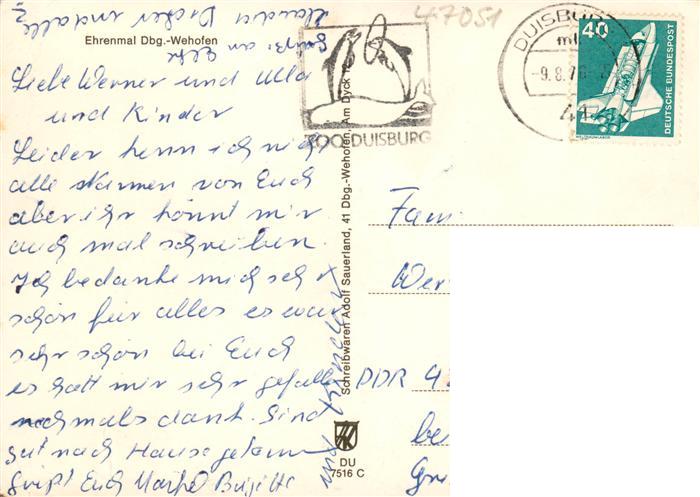 Ehrenmal Dbg.-Wehofen
Liebe Werner und Ulla
und Kinder
Leider kenn ich nicht
alle Namen von Euch
aber ihr könnt mir
auch mal schreiben.
Ich bedanke mich sehr
schön für alles es war
sehr schön bei Euch
es hatt mir sehr gefallen
nochmals dank. Sind
gut nach Hause gekommen
Grüßt Euch Brigitte
und
Schreibwaren Adolf Sauerland, 41 Dbg.-Wehofen, Am Dyck
DU
7516 C
47051
ZOO DUISBURG
DUISBURG
-9.8.76
40
DEUTSCHE BUNDESPOST
WELTRAUMLABOR
Fam
Wer
DDR
be
Gr